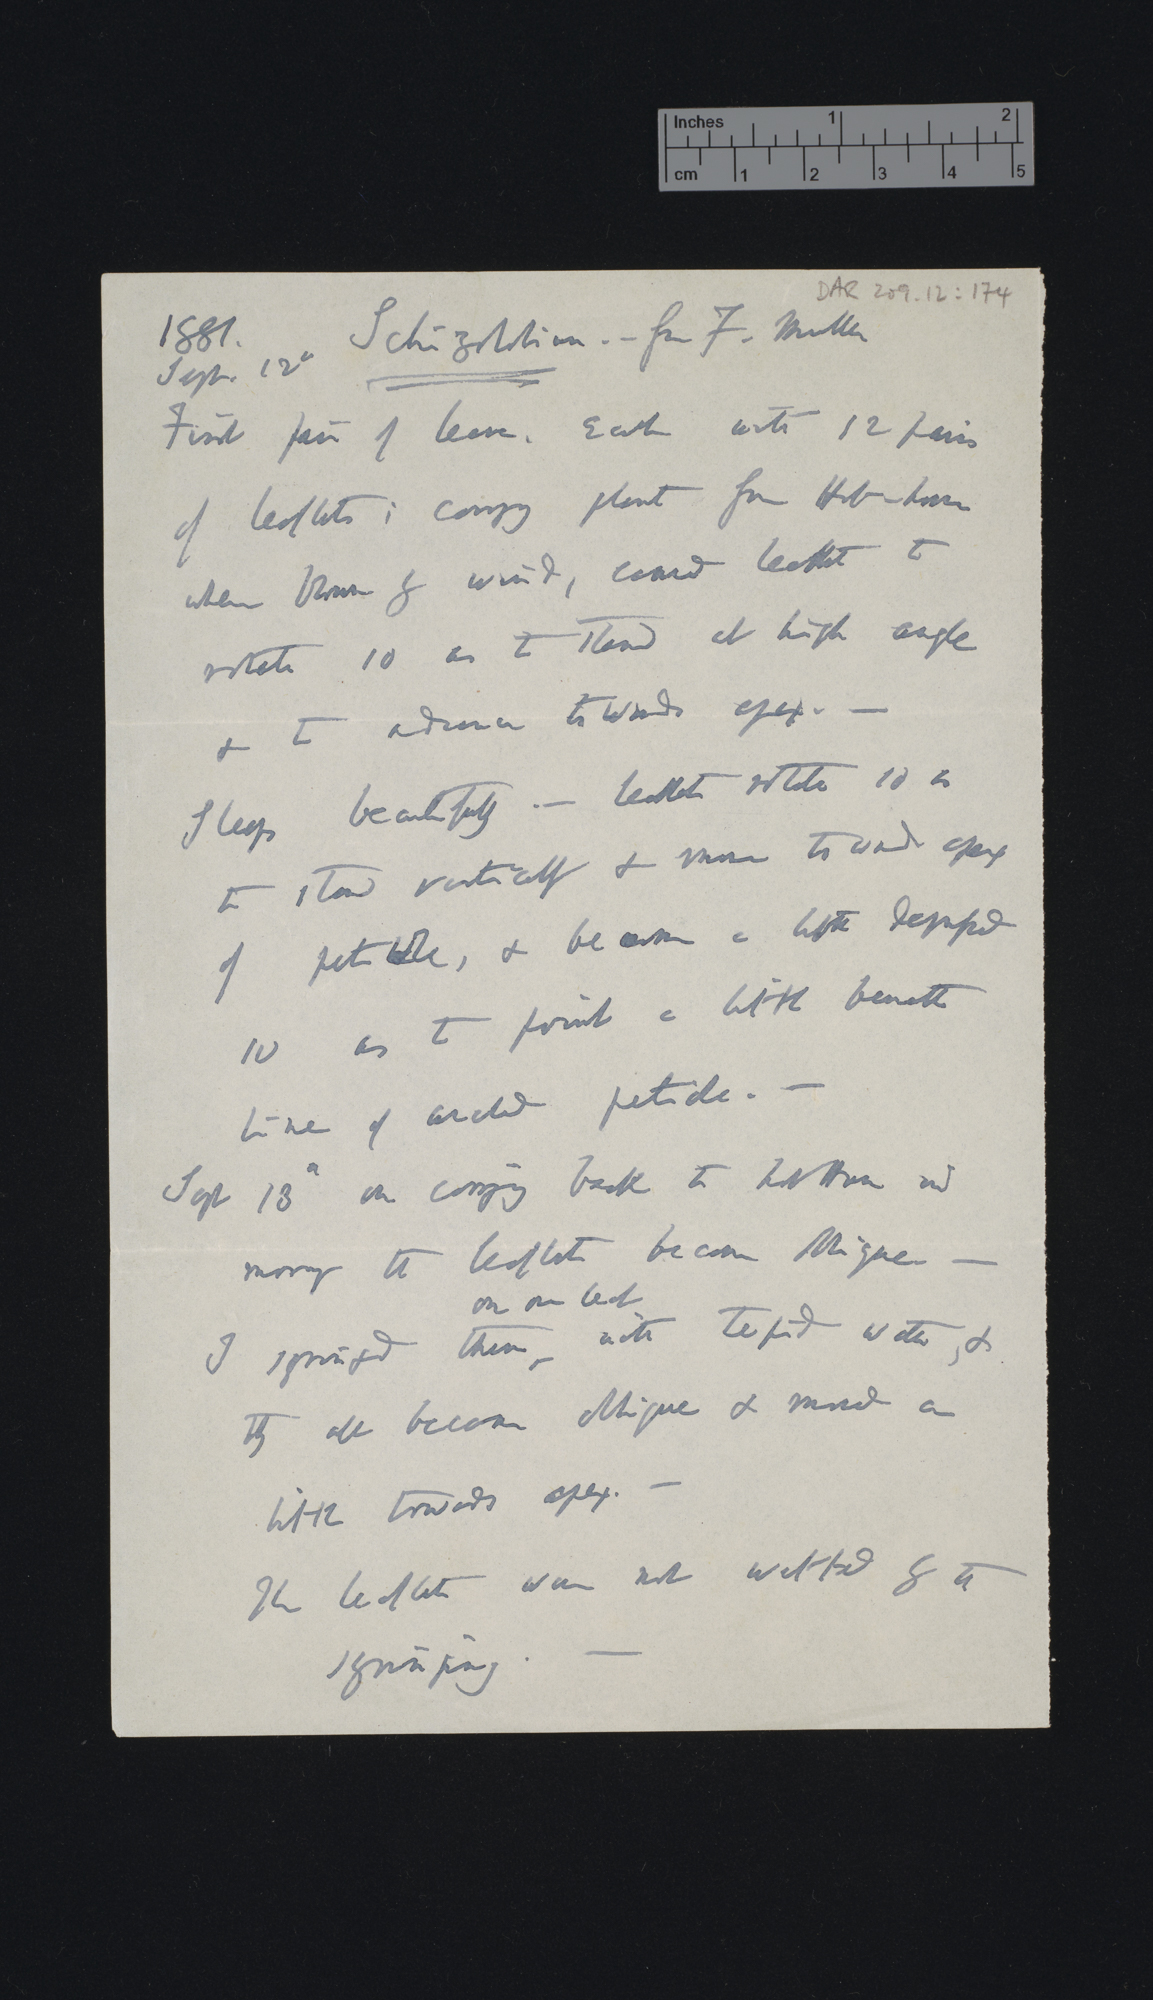 Inches 1 2
cm 1 2 3 4 5
DAR 209.12:174
1881. Schizolobium. — from F. Muller
Sept. 12th
First pair of leaves. Each with 12 pairs
of leaflets; carrying plant from Hot-house
when blown by wind, caused leaflets to
rotate so as to stand at high angle
& to advance towards apex. —
Sleeps beautifully. — leaflets rotate so as
to stand vertically & move toward apex
of petiole, & become a little depressed
so as to point a little beneath
line of arched petiole. —
Sept 13th on carrying back to hothouse in
morning the leaflets became oblique —
I syringed them, on one leaf with tepid water, &
they all became oblique & moved a
little towards apex. —
The leaflets were not wetted by the
syringing. —